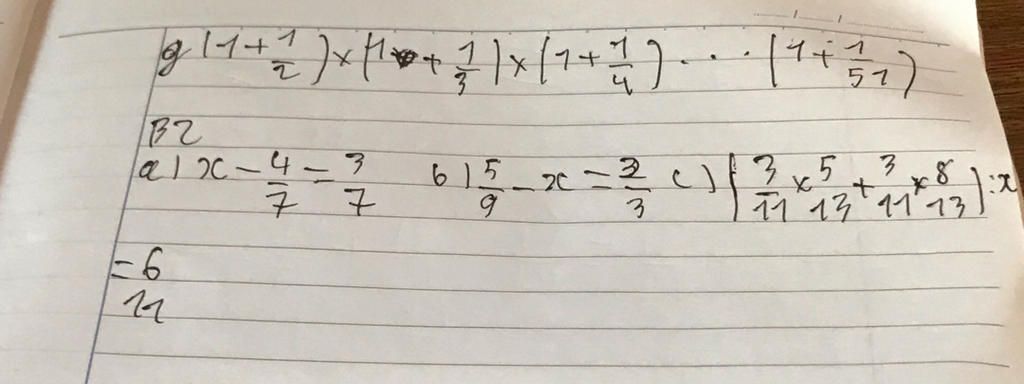 g (1 + 1/2) × (1 + 1/3) × (1 + 1/4) . . . (1 + 1/51)
B2
a) x - 4/7 = 3/7 b) 5/9 - x = 2/3 c) (3/11 × 5/13 + 3/11 × 8/13) : x
= 6/11